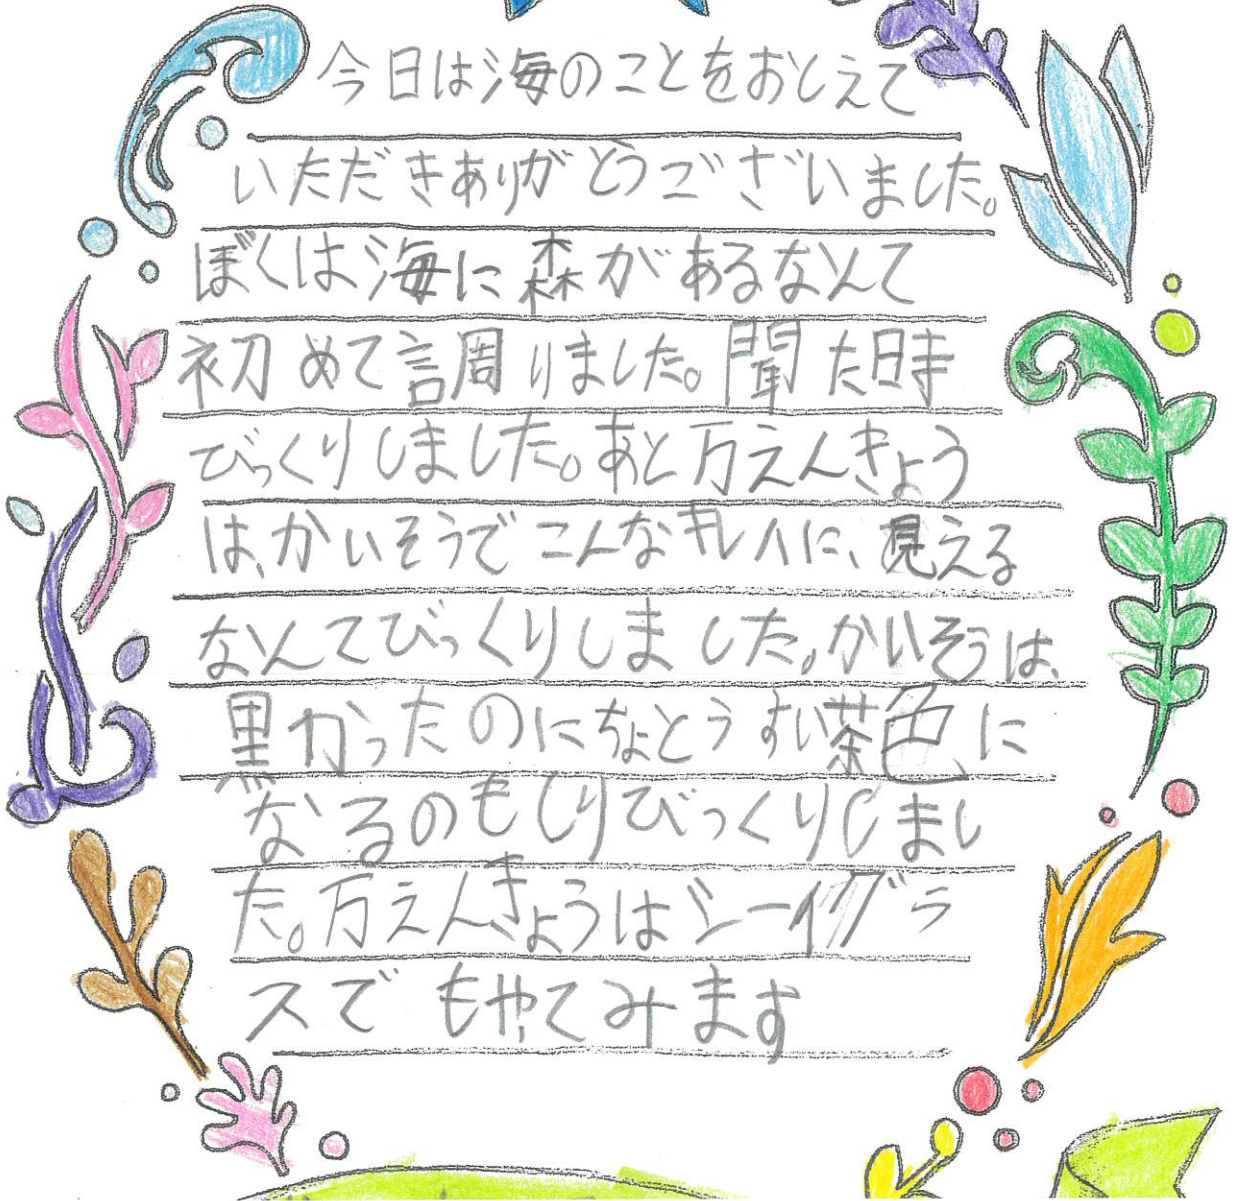 今日は海のことをおしえて
いただきありがとうございました。
ぼくは海に森があるなんて
初めて調りました。聞た時
びっくりしました。あと万えんきょう
は、かいそうでこんなキレイに、見える
なんてびっくりしました。かいそうは、
黒かったのにちょとうすい茶色に
なるのもしりびっくりしまし
た。万えんきょうはシーイグラ
スでもやってみます